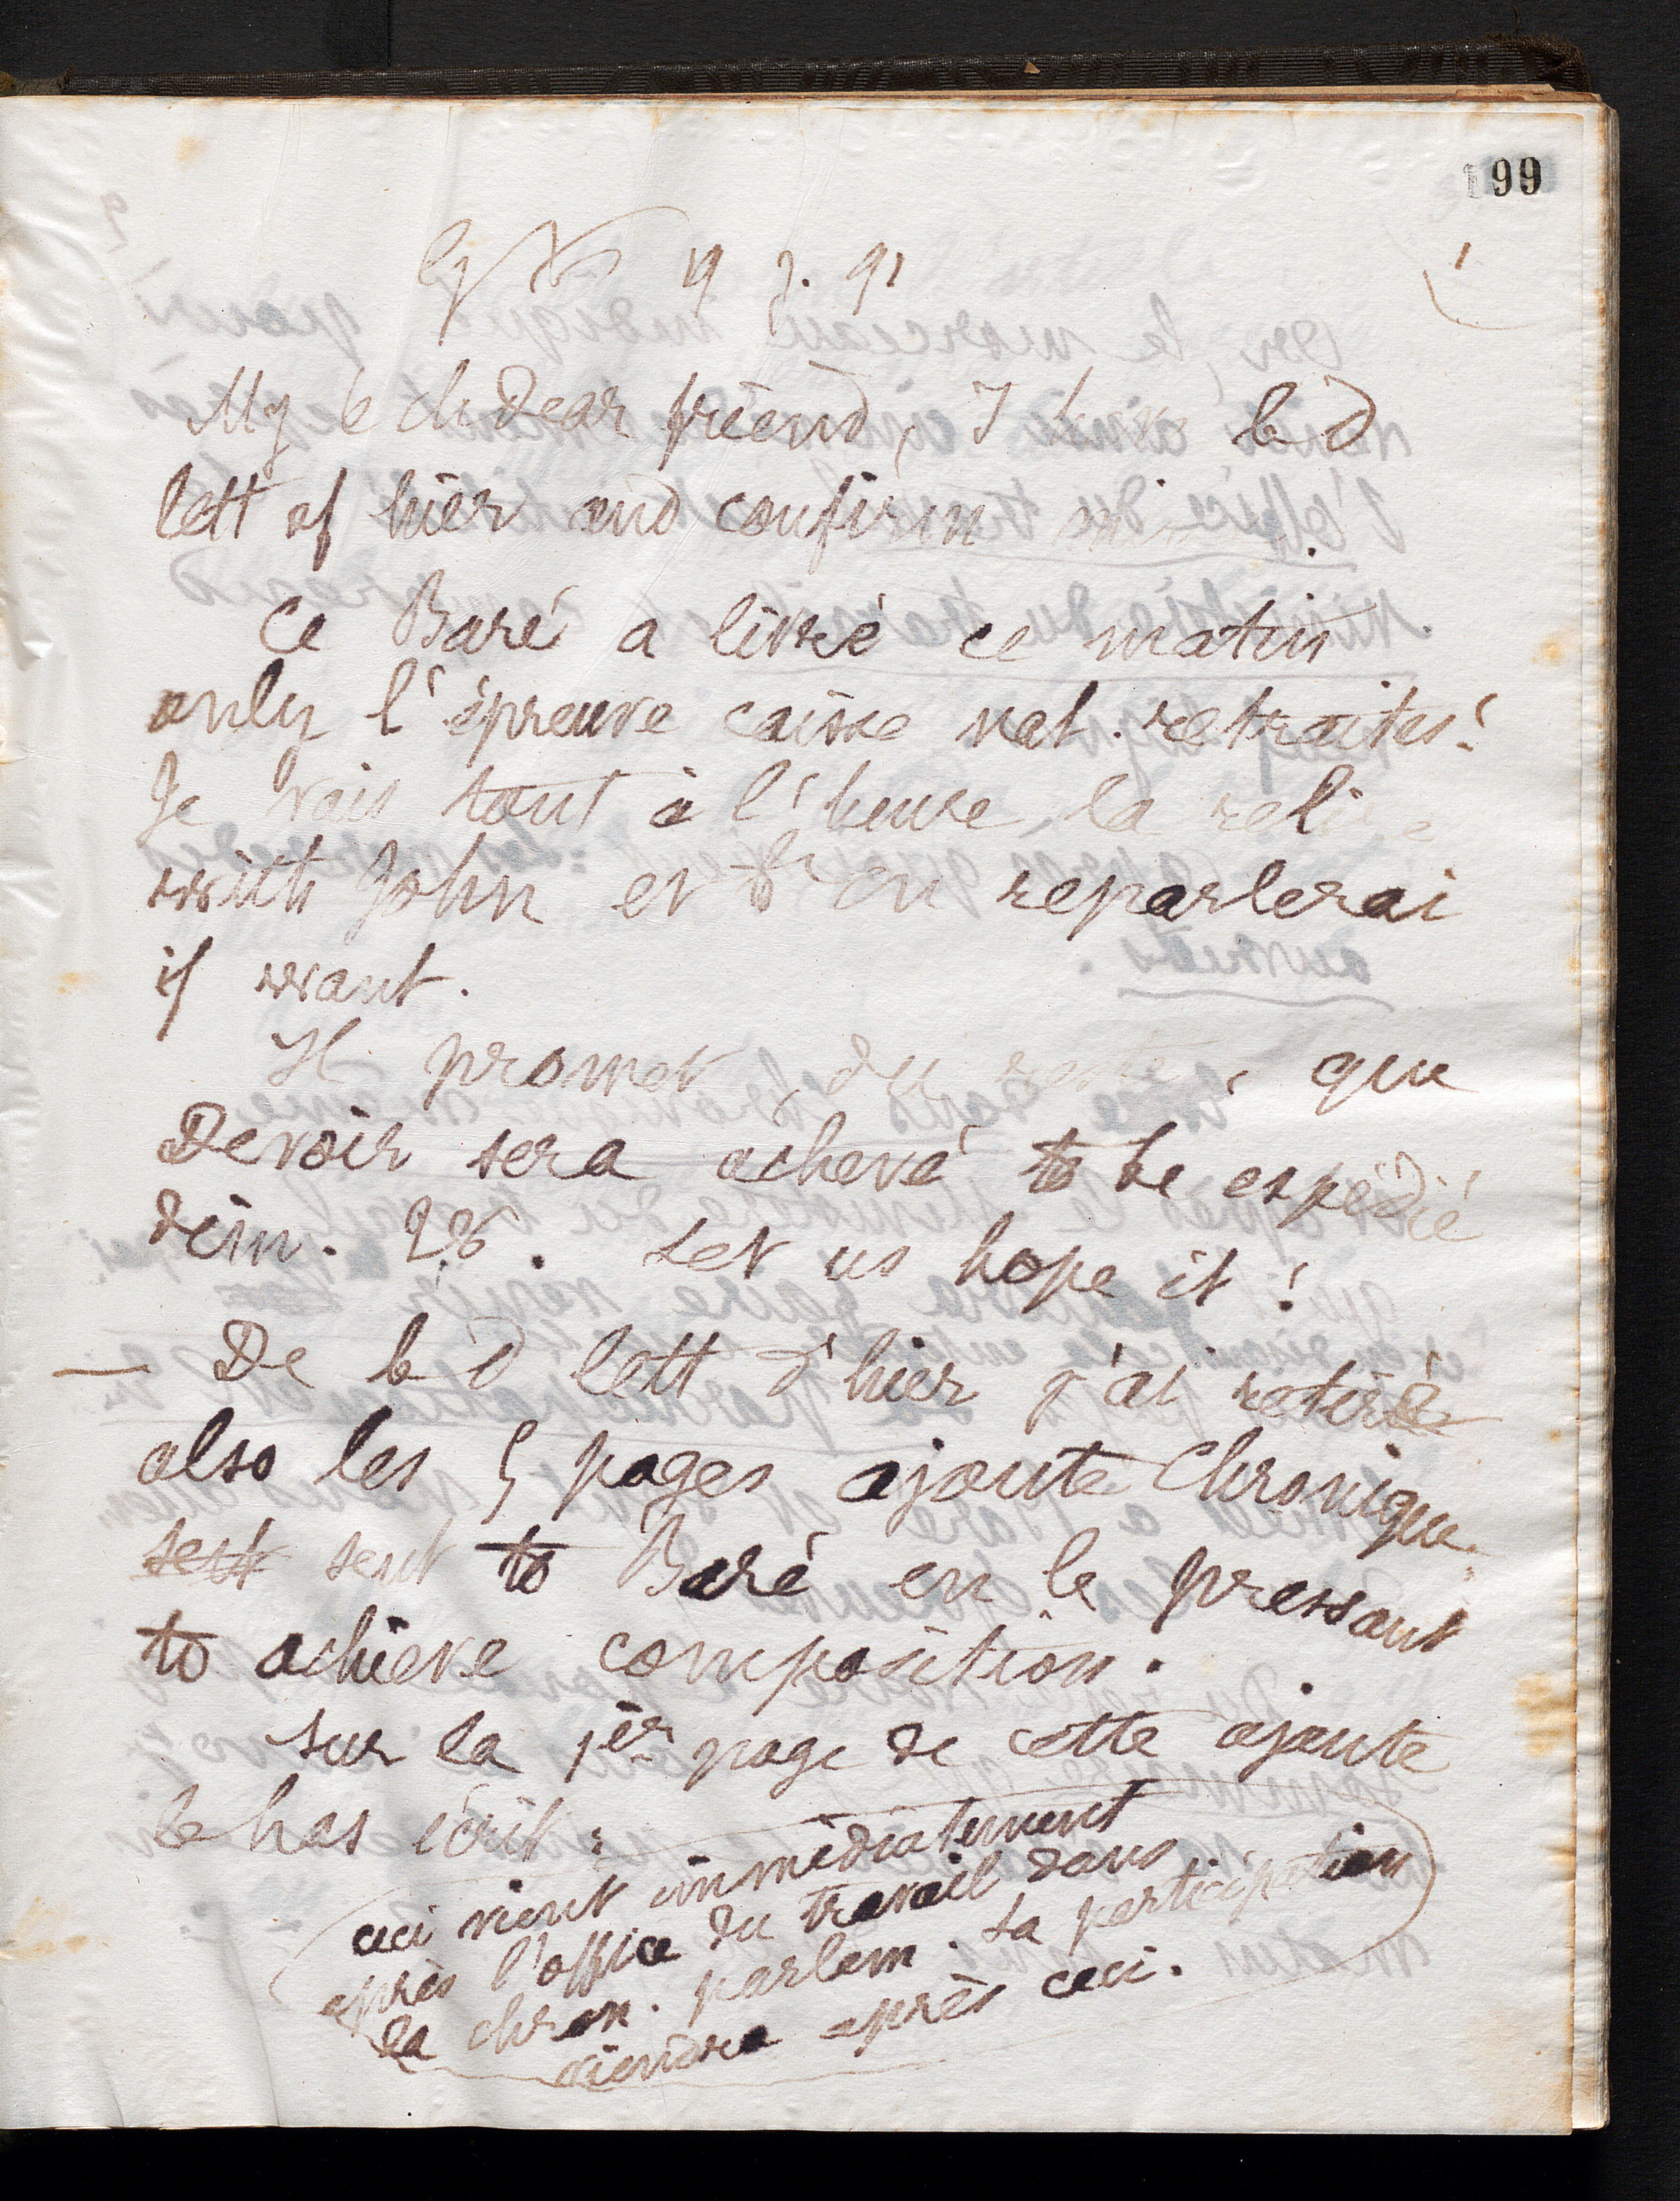 199
1
19 7. 91
My b ch dear friend, I have b d
lett of hier and confirm mine.
Ce Baré a livré ce matin
only l'épreuve caisse nat. retraites!
Je vais tout à l'heure la relire
with John et t' en reparlerai
if want.
Il promet, du reste, que
Devoir sera achevé to be expédié
dim. 26. Let us hope it!
— De b d lett d'hier j'ai retiré
also les 5 pages ajoute Chronique
sent sent to Baré en le pressant
to achieve composition.
Sur la 1ère page de cette ajoute
be has écrit:
ceci vient immédiatement
après l'office du travail dans
la chron. parlem. La participation
viendra après ceci.